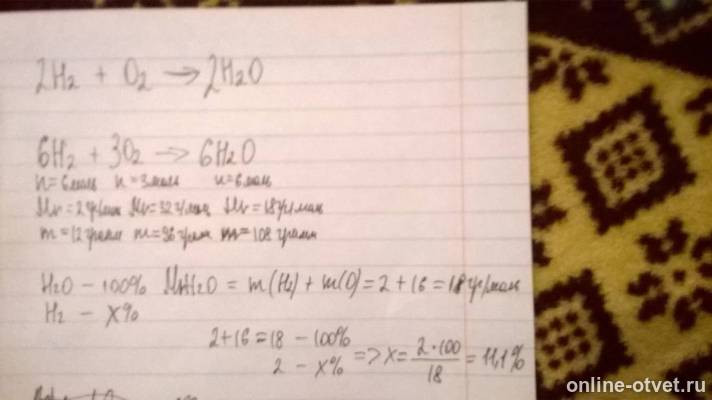 2H₂ + O₂ → 2H₂O
6H₂ + 3O₂ → 6H₂O
n=6моль n=3моль n=6моль
Mr=2гр/моль Mr=32г/моль Mr=18гр/моль
m=12грамм m=96грам m=108грамм
H₂O – 100% MrH₂O = m(H₂) + m(O) = 2 + 16 = 18гр/моль
H₂ – X%
2+16=18 – 100%
2 – X% => X = 2·100/18 = 11,1%
online-otvet.ru